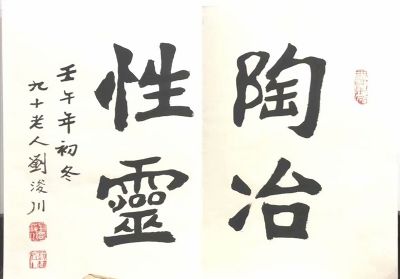 陶冶
性靈
壬午年初冬
九十老人劉浚川